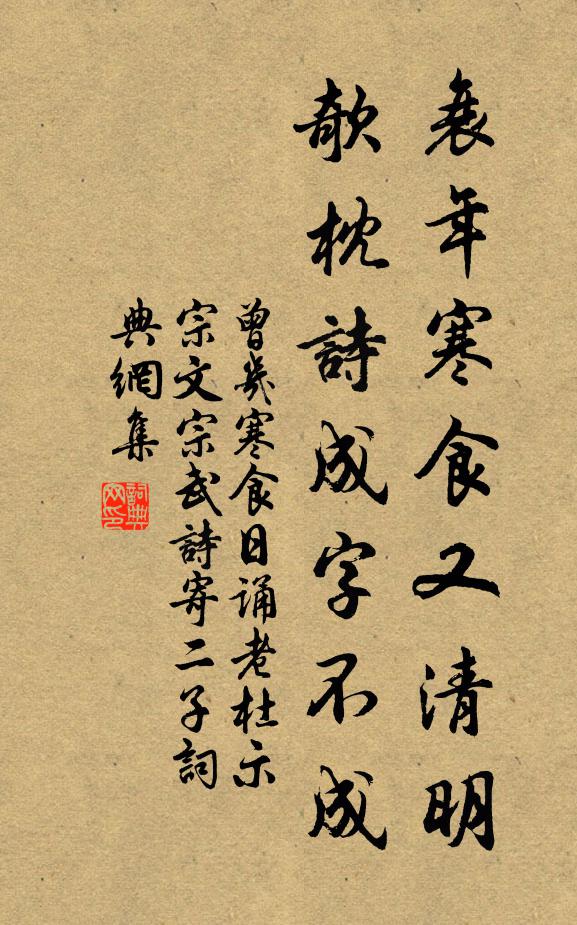 衰年寒食又清明
欹枕詩成字不成
曾幾寒食日誦老杜示
宗文宗武詩寄二子詞
典網集
詞典網印